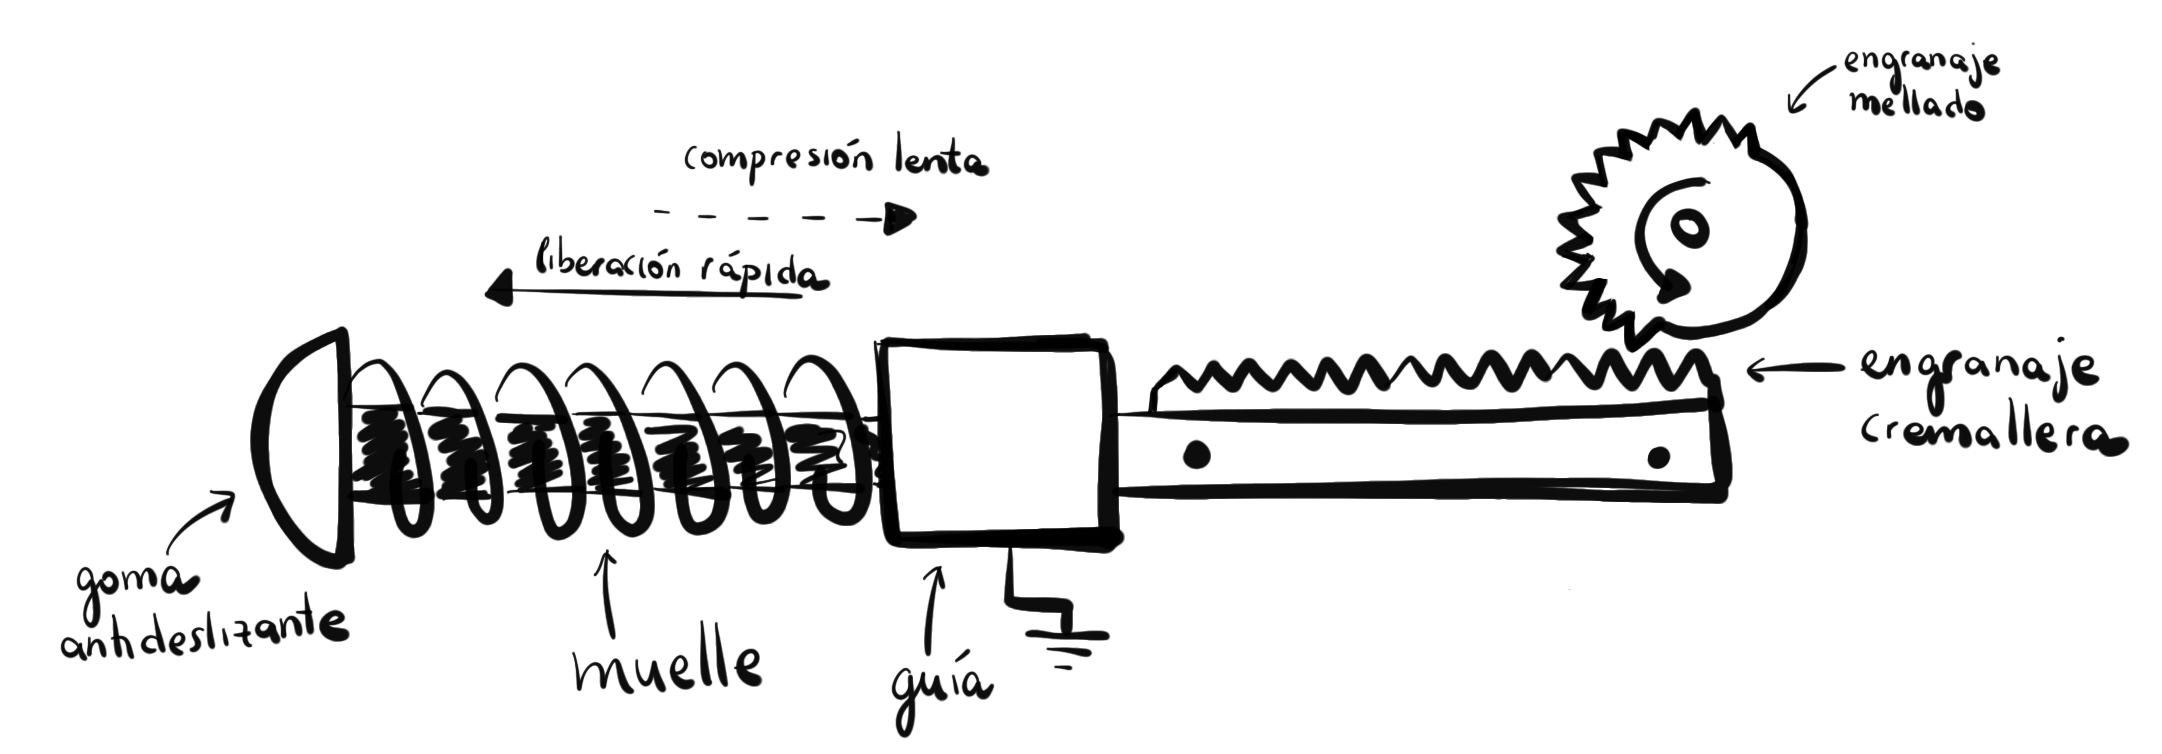 engranaje
mellado
compresión lenta
liberación rápida
engranaje
cremallera
goma
antideslizante
muelle
guía